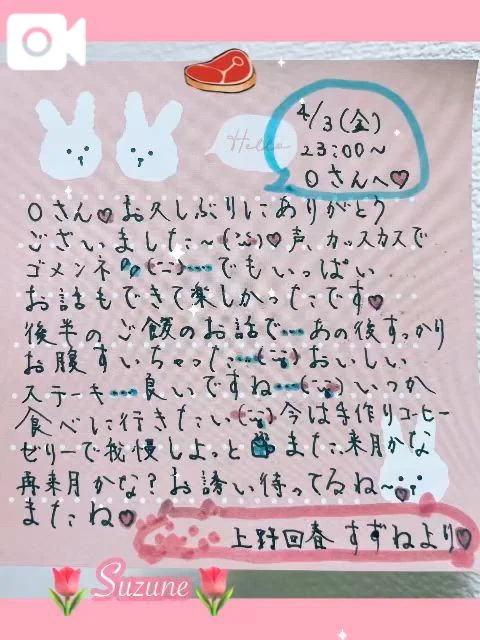 Hello
4/3(金)
23:00~
Oさんへ♡
Oさん♡お久しぶりにありがとう
ございました~♡声、カッスカスで
ゴメンネ…でもいっぱい
お話もできて楽しかったです♡
後半のご飯のお話で…あの後すっかり
お腹すいちゃった…おいしい
ステーキ…良いですね…いつか
食べに行きたい 今は手作りコーヒー
ゼリーで我慢しよっと また来月かな
再来月かな?お誘い待ってるね~♡
またね♡
上野回春 すずねより♡
Suzune